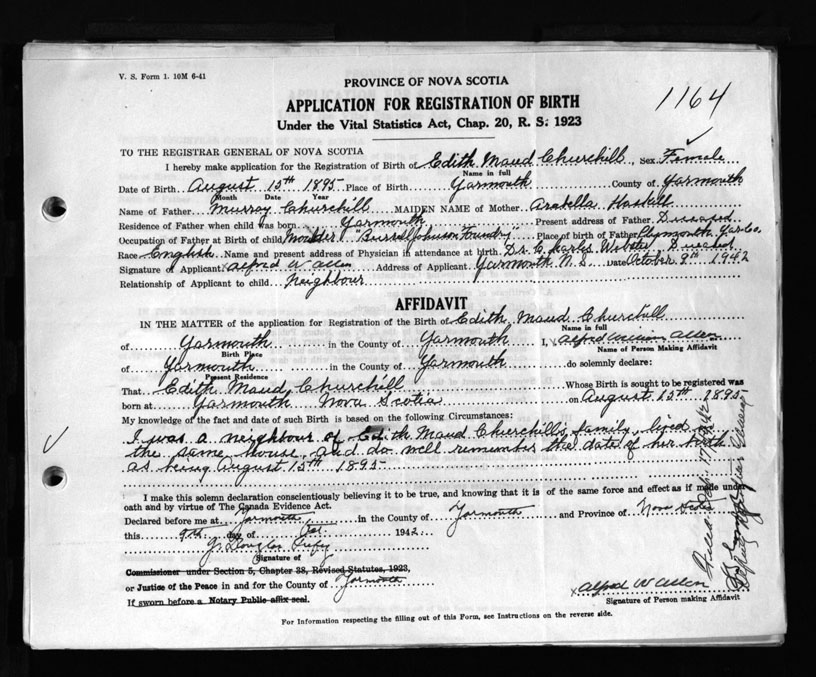 V. S. Form 1. 10M 6-41
PROVINCE OF NOVA SCOTIA
1164
APPLICATION FOR REGISTRATION OF BIRTH
Under the Vital Statistics Act, Chap. 20, R. S. 1923
TO THE REGISTRAR GENERAL OF NOVA SCOTIA
I hereby make application for the Registration of Birth of Edith Maud Churchill, Sex Female
Name in full
Date of Birth August 15th 1895 Place of Birth Yarmouth County of Yarmouth
Month Date Year
Name of Father Murray Churchill MAIDEN NAME of Mother Arabella Haskell
Residence of Father when child was born Yarmouth Present address of Father Diseased
Occupation of Father at Birth of child Moulder "Burrell Johnson Foundry" Place of birth of Father Plymouth Yar Co.
Race English Name and present address of Physician in attendance at birth Dr. Charles Webster,
Signature of Applicant Alfred W Allen Address of Applicant Yarmouth N.S. Date October 9th 1942
Relationship of Applicant to child Neighbour
AFFIDAVIT
IN THE MATTER of the application for Registration of the Birth of Edith Maud Churchill
Name in full
of Yarmouth in the County of Yarmouth I, Alfred William Allen
Birth Place Name of Person Making Affidavit
of Yarmouth in the County of Yarmouth do solemnly declare:
Present Residence
That Edith Maud Churchill Whose Birth is sought to be registered was
born at Yarmouth Nova Scotia on August 15th 1895
My knowledge of the fact and date of such Birth is based on the following Circumstances:
I was a neighbour of Edith Maud Churchill's family, lived in
the same house, and do well remember the date of her birth
as being August 15th 1895
I make this solemn declaration conscientiously believing it to be true, and knowing that it is of the same force and effect as if made under
oath and by virtue of The Canada Evidence Act.
Declared before me at Yarmouth in the County of Yarmouth and Province of Nova Scotia
this 9th day of Oct. 1942
J. Douglas
Signature of
Commissioner under Section 5, Chapter 38, Revised Statutes, 1923,
or Justice of the Peace in and for the County of Yarmouth
If sworn before a Notary Public affix seal.
x Alfred W Allen
Signature of Person making Affidavit
For Information respecting the filling out of this Form, see Instructions on the reverse side.